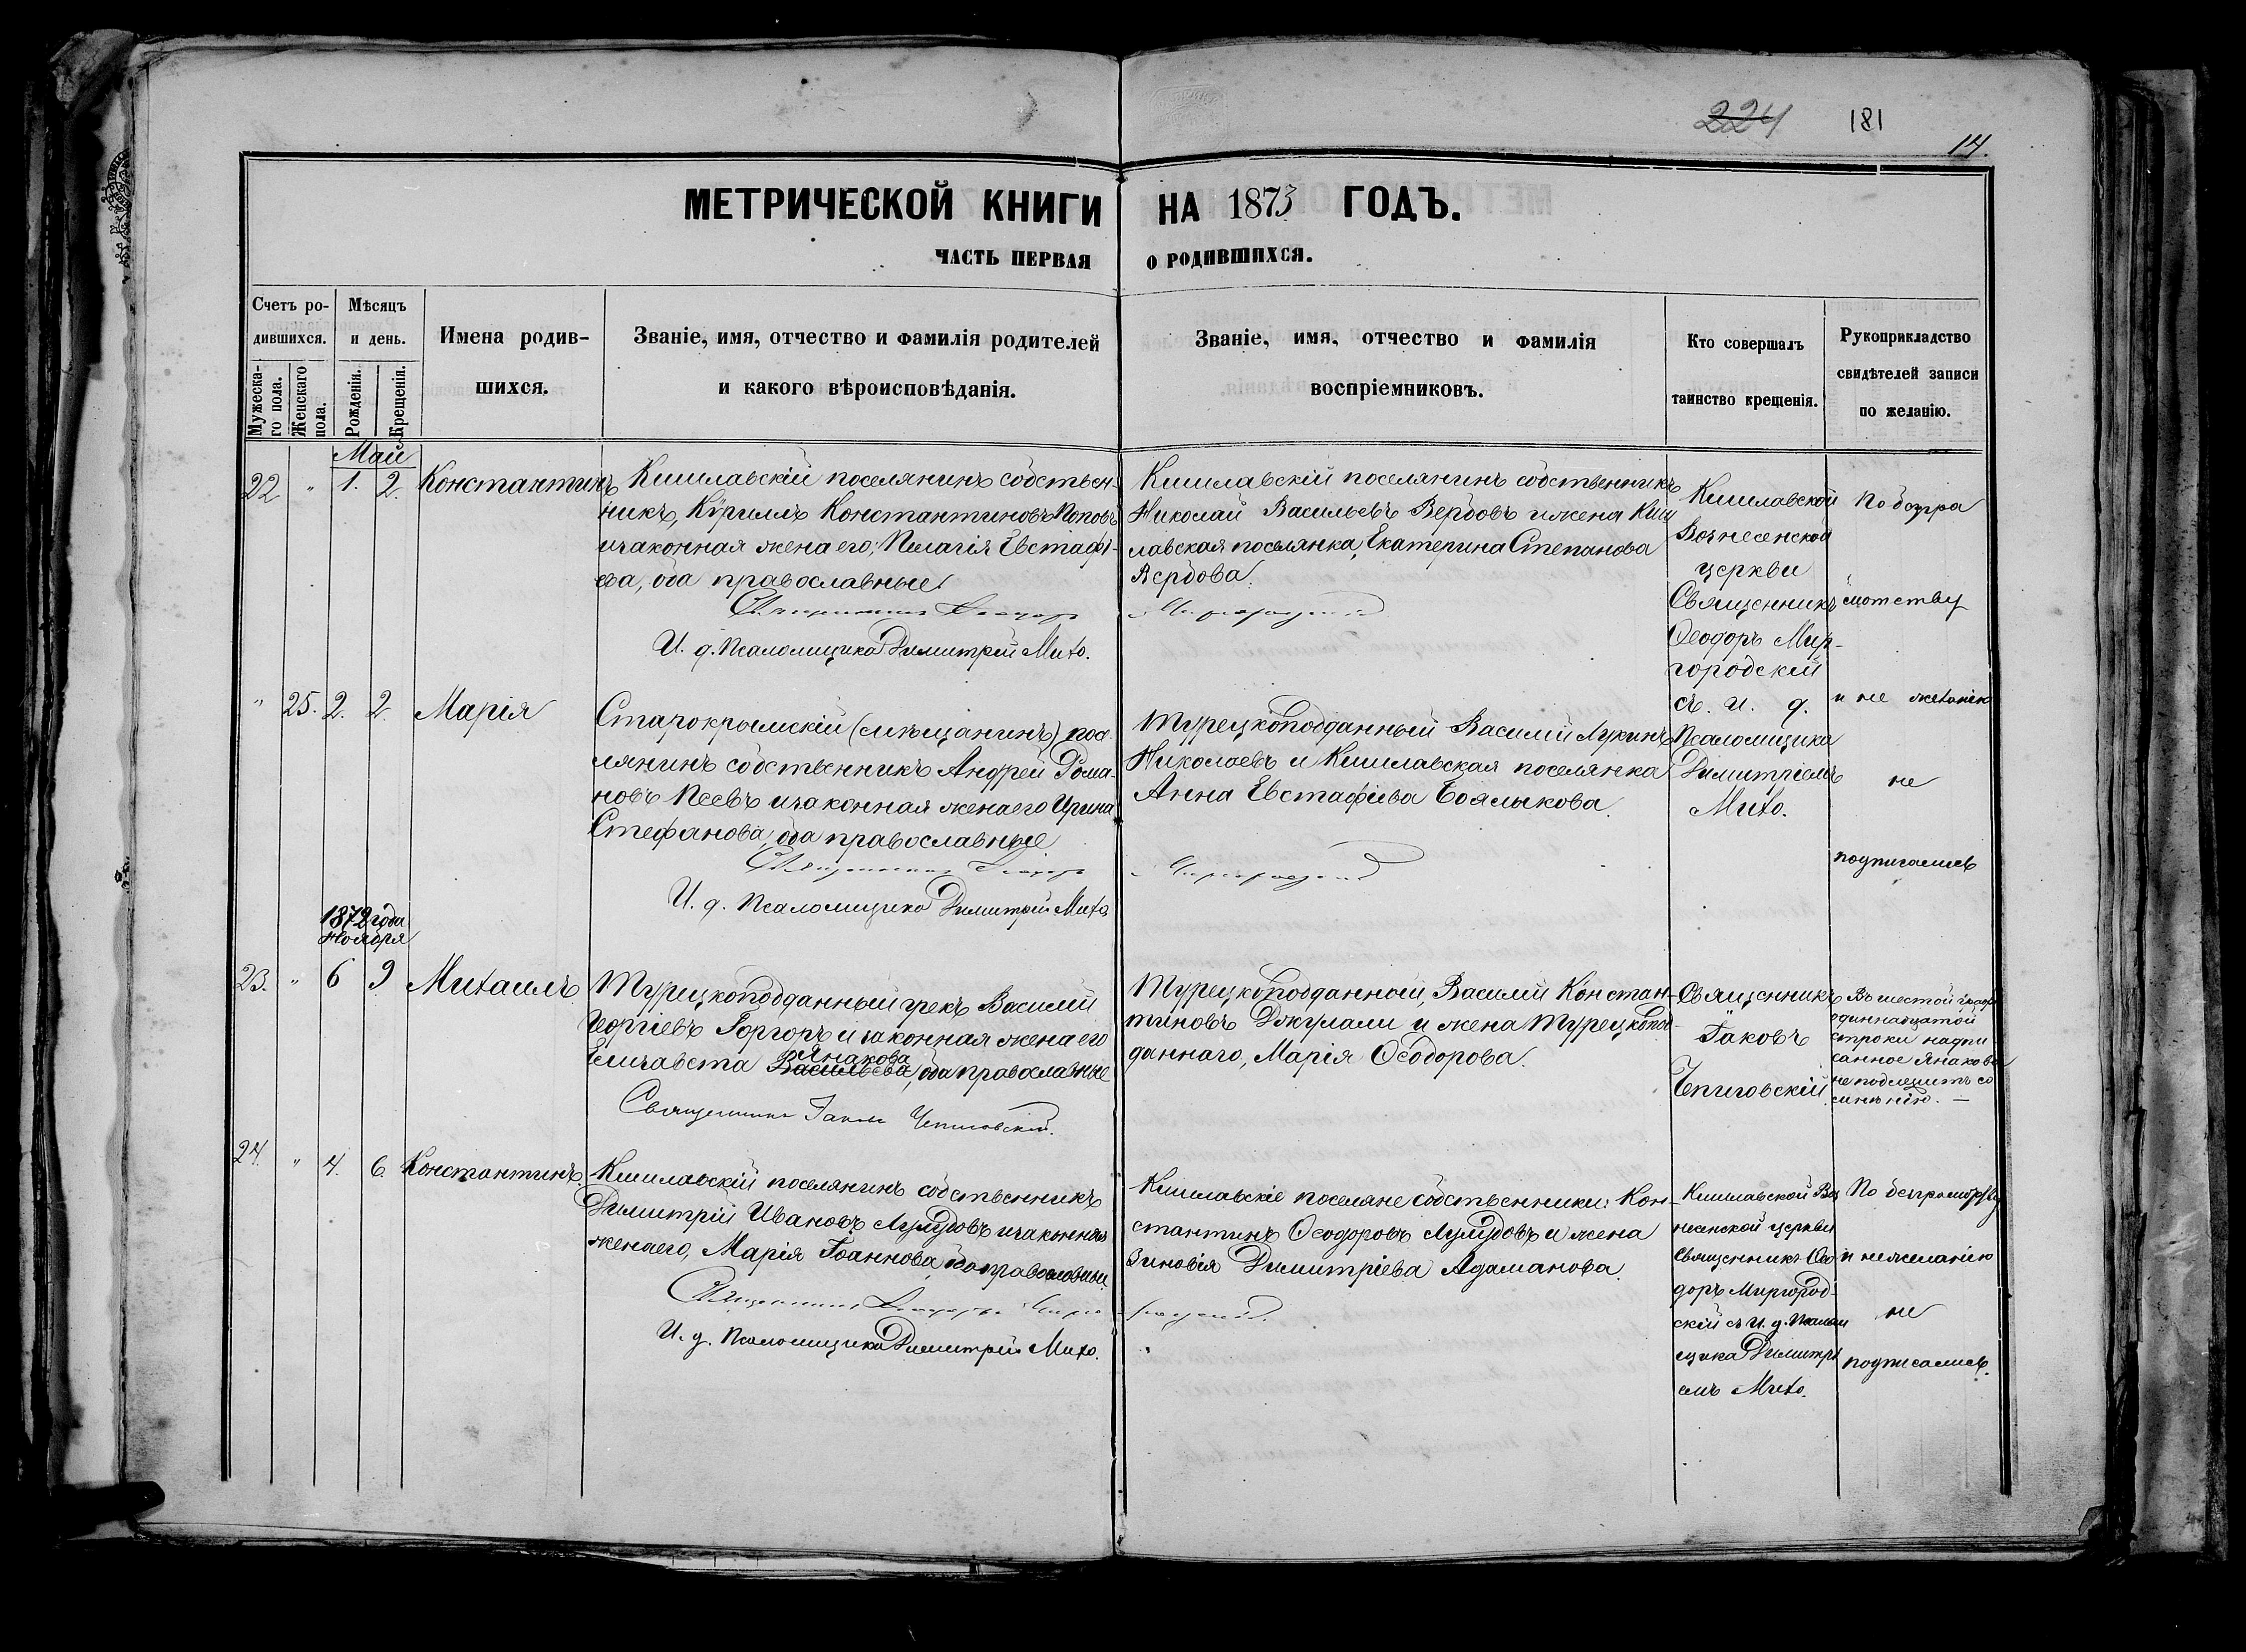 224 181
14.
МЕТРИЧЕСКОЙ КНИГИ НА 1873 ГОДЪ.
ЧАСТЬ ПЕРВАЯ О РОДИВШИХСЯ.
Счетъ ро-
дившихся.
Мужеска-
го пола.
Женскаго
пола.
Мѣсяцъ
и день.
Рожденія.
Крещенія.
Имена родив-
шихся.
Званіе, имя, отчество и фамилія родителей
и какого вѣроисповѣданія.
Званіе, имя, отчество и фамилія
воспріемниковъ.
Кто совершалъ
таинство крещенія.
Рукоприкладство
свидѣтелей записи
по желанію.
Май
22 " 1. 2. Константинъ
Кишлавскій поселянинъ собствен-
никъ, Кѵриллъ Константиновъ Поповъ
и законная жена его, Пелагія Евстафі-
ева, оба православные.
Священникъ Ѳеодоръ
И. д. Псаломщика Димитрій Михо.
Кишлавскій поселянинъ собственникъ
Николай Васильевъ Вербовъ и жена Киш
лавская поселянка, Екатерина Степанова
Вербова.
Миргородскій
Кишлавской
Вознесенской
церкви
Священникъ
Ѳеодоръ Мир-
городскій
съ и. д.
Псаломщика
Димитріемъ
Михо.
По безгра
мотству
и не желанію
не
подписались
" 25. 2. 2. Марія
Старокрымскій (мѣщанинъ) посе-
лянинъ собственникъ Андрей Рома-
новъ Пеевъ и законная жена его Ирина
Стефанова, оба православные
Священникъ Ѳеодоръ
И. д. Псаломщика Димитрій Михо
Турецкоподданный Василій Лукинъ
Николаевъ и Кишлавская поселянка
Анна Евстафіева Бояльікова.
Миргородскій
1872 года
Ноября
23. " 6 9 Михаилъ
Турецкоподданный грекъ Василій
Георгіевъ Горгоръ и законная жена его
Янакова
Елизавета Васильева, оба православные
Священникъ Іаковъ Чепиговскій.
Турецкоподданной, Василій Констан-
тиновъ Джулами и жена Турецкопод-
даннаго, Марія Ѳеодорова.
Священникъ
Іаковъ
Чепиговскій.
Въ шестой графѣ
одиннадцатой
строки надпи
санное Янакова
не подлежитъ со
мнѣнію. —
24. " 4. 6. Константинъ.
Кишлавскій поселянинъ собственникъ
Димитрій Ивановъ Лулудовъ и законная
жена его, Марія Іоаннова, оба православные.
Священникъ Ѳеодоръ Мирго-
И. д. Псаломщика Димитрій Михо.
Кишлавскіе поселяне собственники: Кон-
стантинъ Ѳеодоровъ Лулудовъ и жена
Зиновія Димитріева Адаманова.
родскій.
Кишлавской Воз
несенской церкви
Священникъ Ѳео
доръ Миргород-
скій съ И. д. Псалом
щика Димитрі
емъ Михо.
По безграмотству
и не желанію
не
подписались.